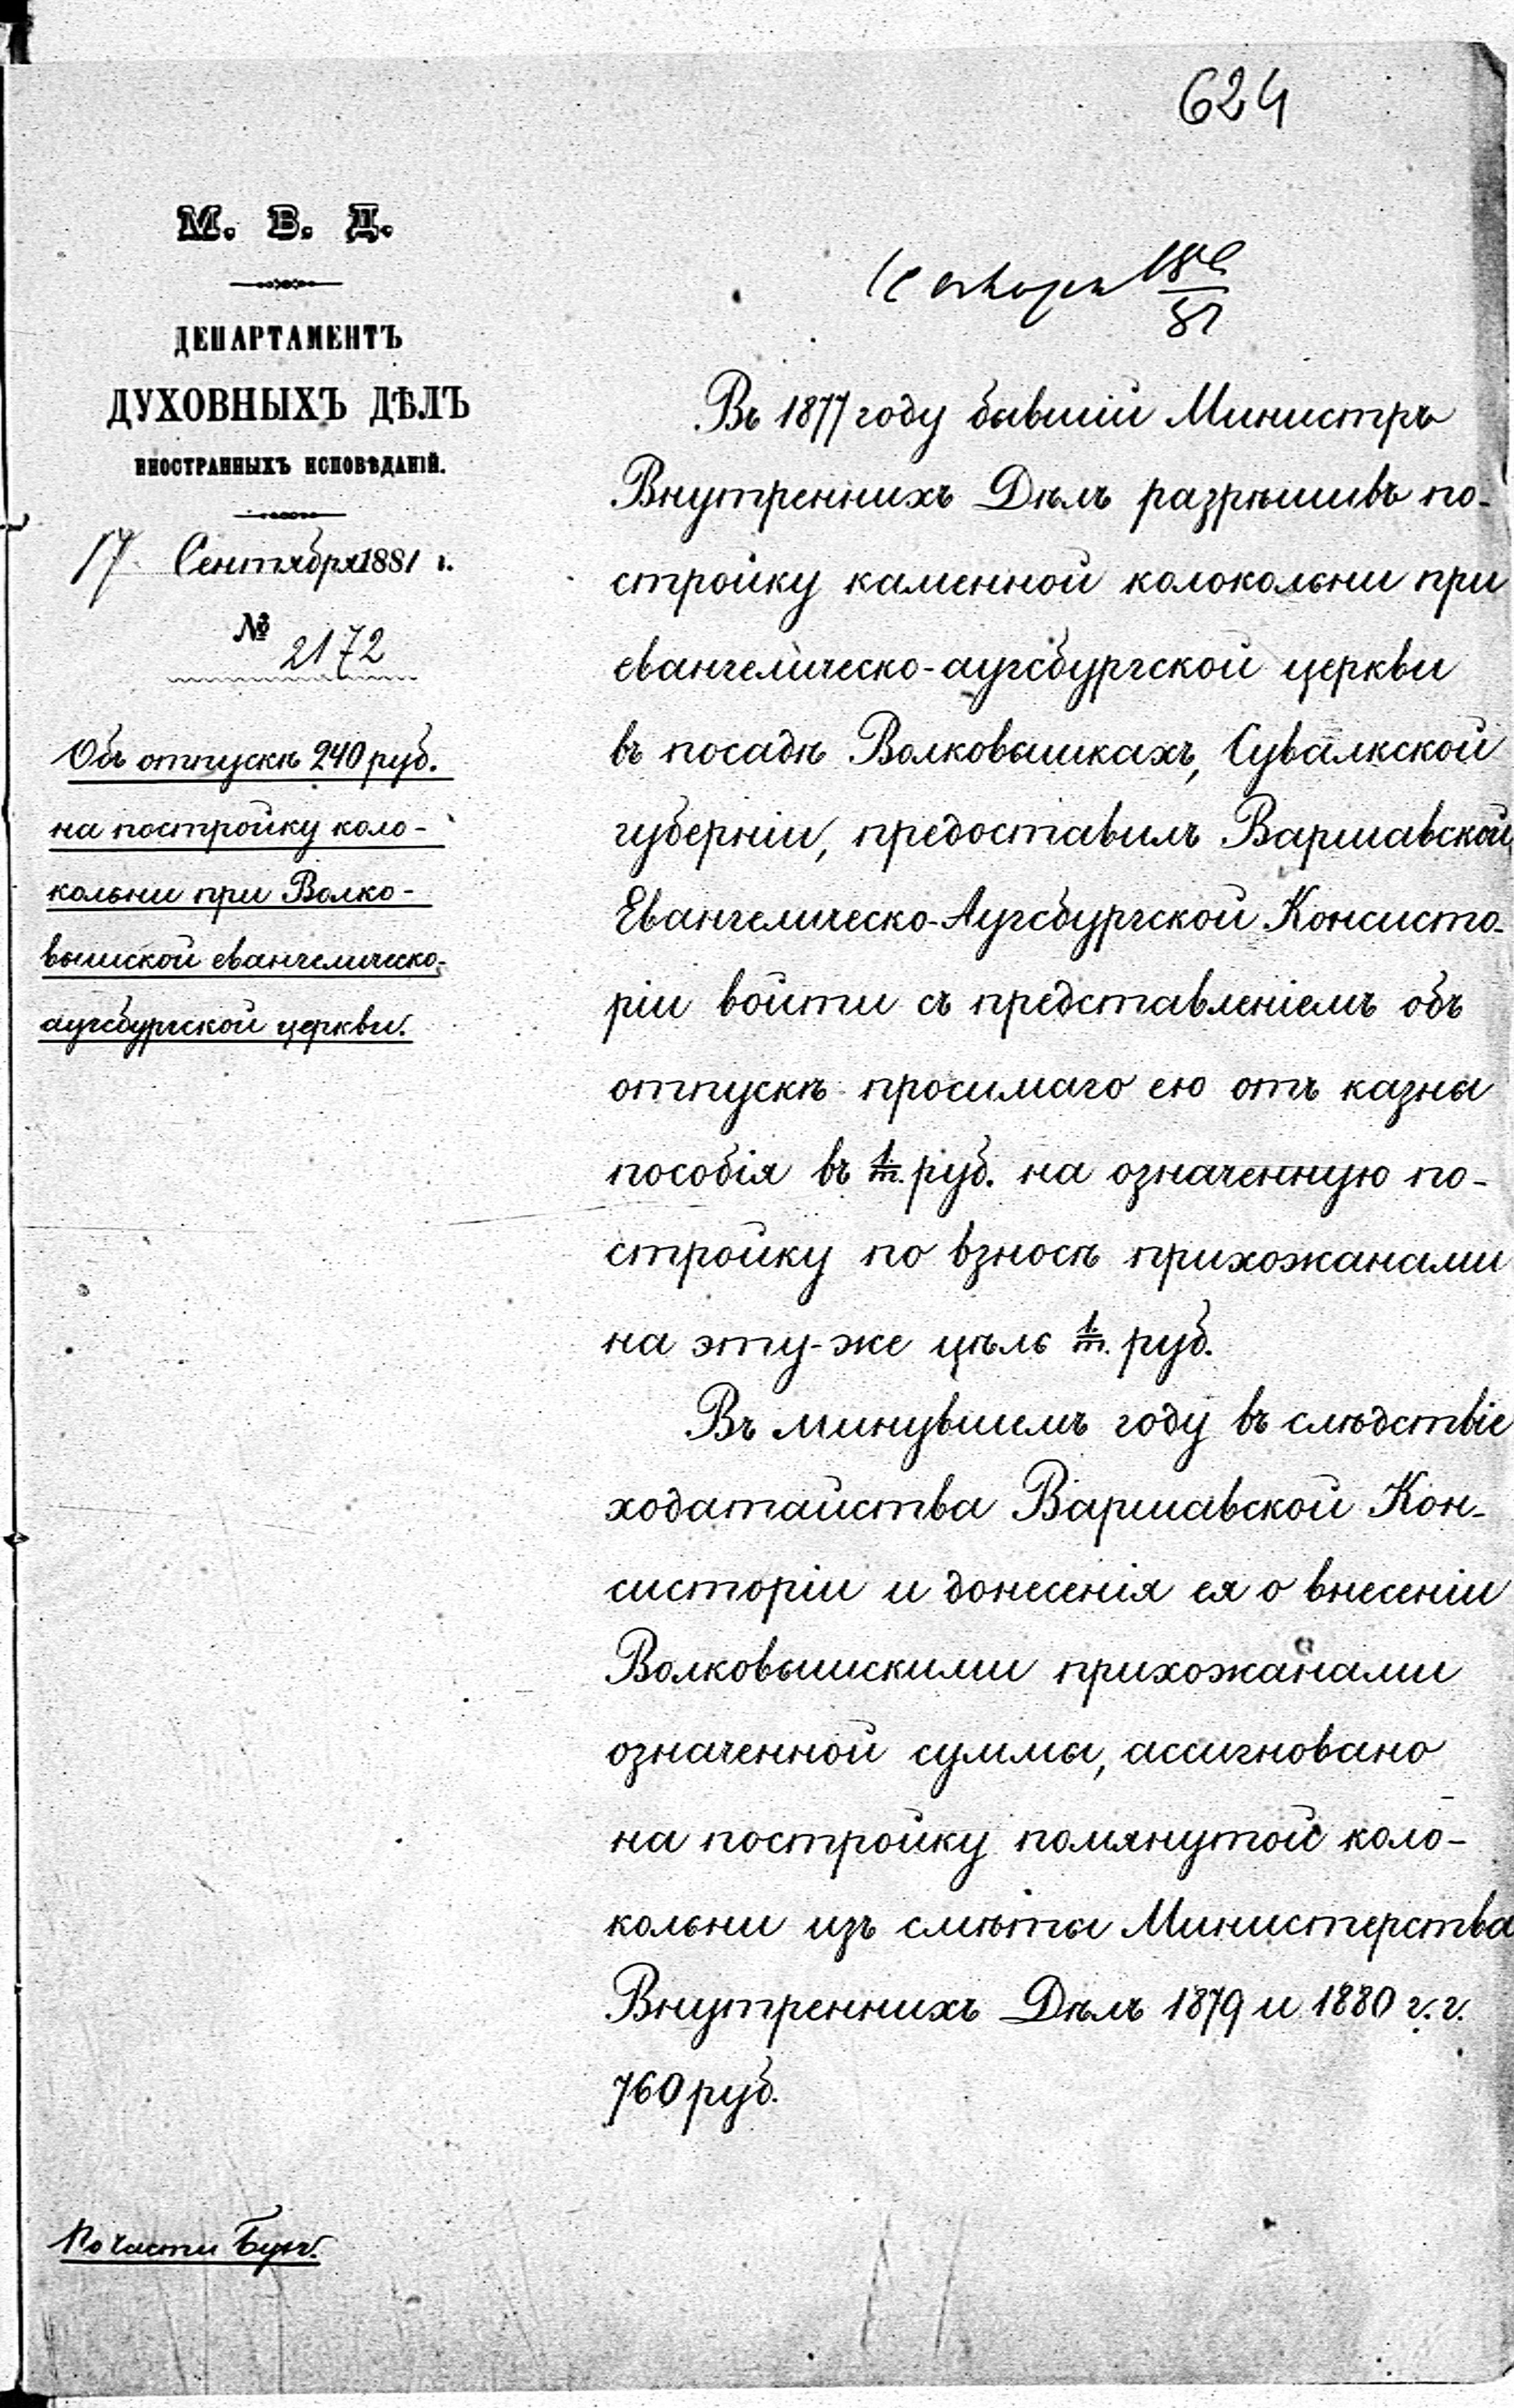 624
М. В. Д.
ДЕПАРТАМЕНТЪ
ДУХОВНЫХЪ ДѢЛЪ
ИНОСТРАННЫХЪ ИСПОВѢДАНІЙ.
17 Сентября 1881 г.
№ 2172
Объ отпускѣ 240 руб.
на постройку коло-
кольни при Волко-
вышской евангелическо-
аугсбургской церкви.
По части Бухг.
81
Въ 1877 году бывшій Министръ
Внутреннихъ Дѣлъ разрѣшивъ по-
стройку каменной колокольни при
евангелическо-аугсбургской церкви
въ посадѣ Волковышкахъ, Сувалкской
губерніи, предоставилъ Варшавской
Евангелическо-Аугсбургской Консисто-
ріи войти съ представленіемъ объ
отпускѣ просимаго ею отъ казны
пособія въ 1/т. руб. на означенную по-
стройку по взносѣ прихожанами
на эту-же цѣль 1/т. руб.
Въ минувшемъ году въ слѣдствіе
ходатайства Варшавской Кон-
систоріи и донесенія ея о внесеніи
Волковышскими прихожанами
означенной суммы, ассигновано
на постройку помянутой коло-
кольни изъ смѣты Министерства
Внутреннихъ Дѣлъ 1879 и 1880 г.г.
760 руб.